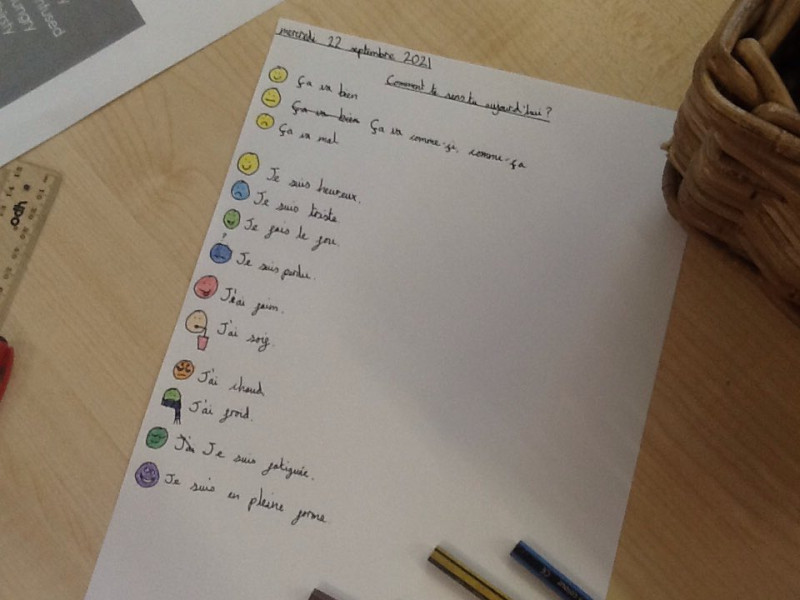 mercredi 22 septembre 2021
Comment te sens-tu aujourd'hui?
Ça va bien
Ça va bien Ça va comme-çi, comme-ça
Ça va mal
Je suis heureux.
Je suis triste.
Je fais le fou.
Je suis perdu.
J'ai faim.
J'ai soif.
J'ai chaud.
J'ai froid.
J'ai Je suis fatiguée.
Je suis en pleine forme.